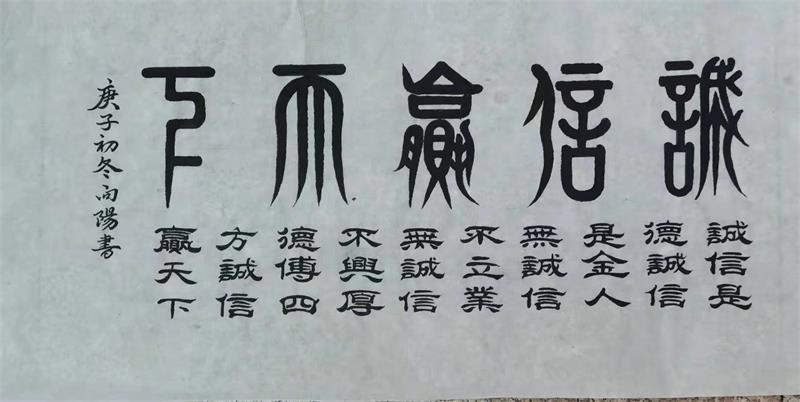 誠信贏天下
誠信是
德誠信
是金人
無誠信
不立業
無誠信
不興厚
德傳四
方誠信
贏天下
庚子初冬向陽書